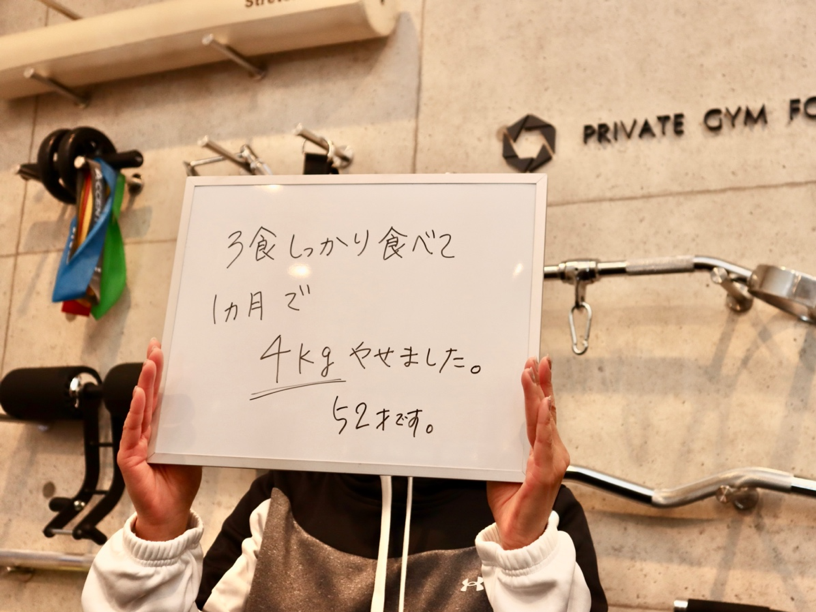 Stre
PRIVATE GYM FO
3食しっかり食べて
1ヵ月で
4kgやせました。
52才です。